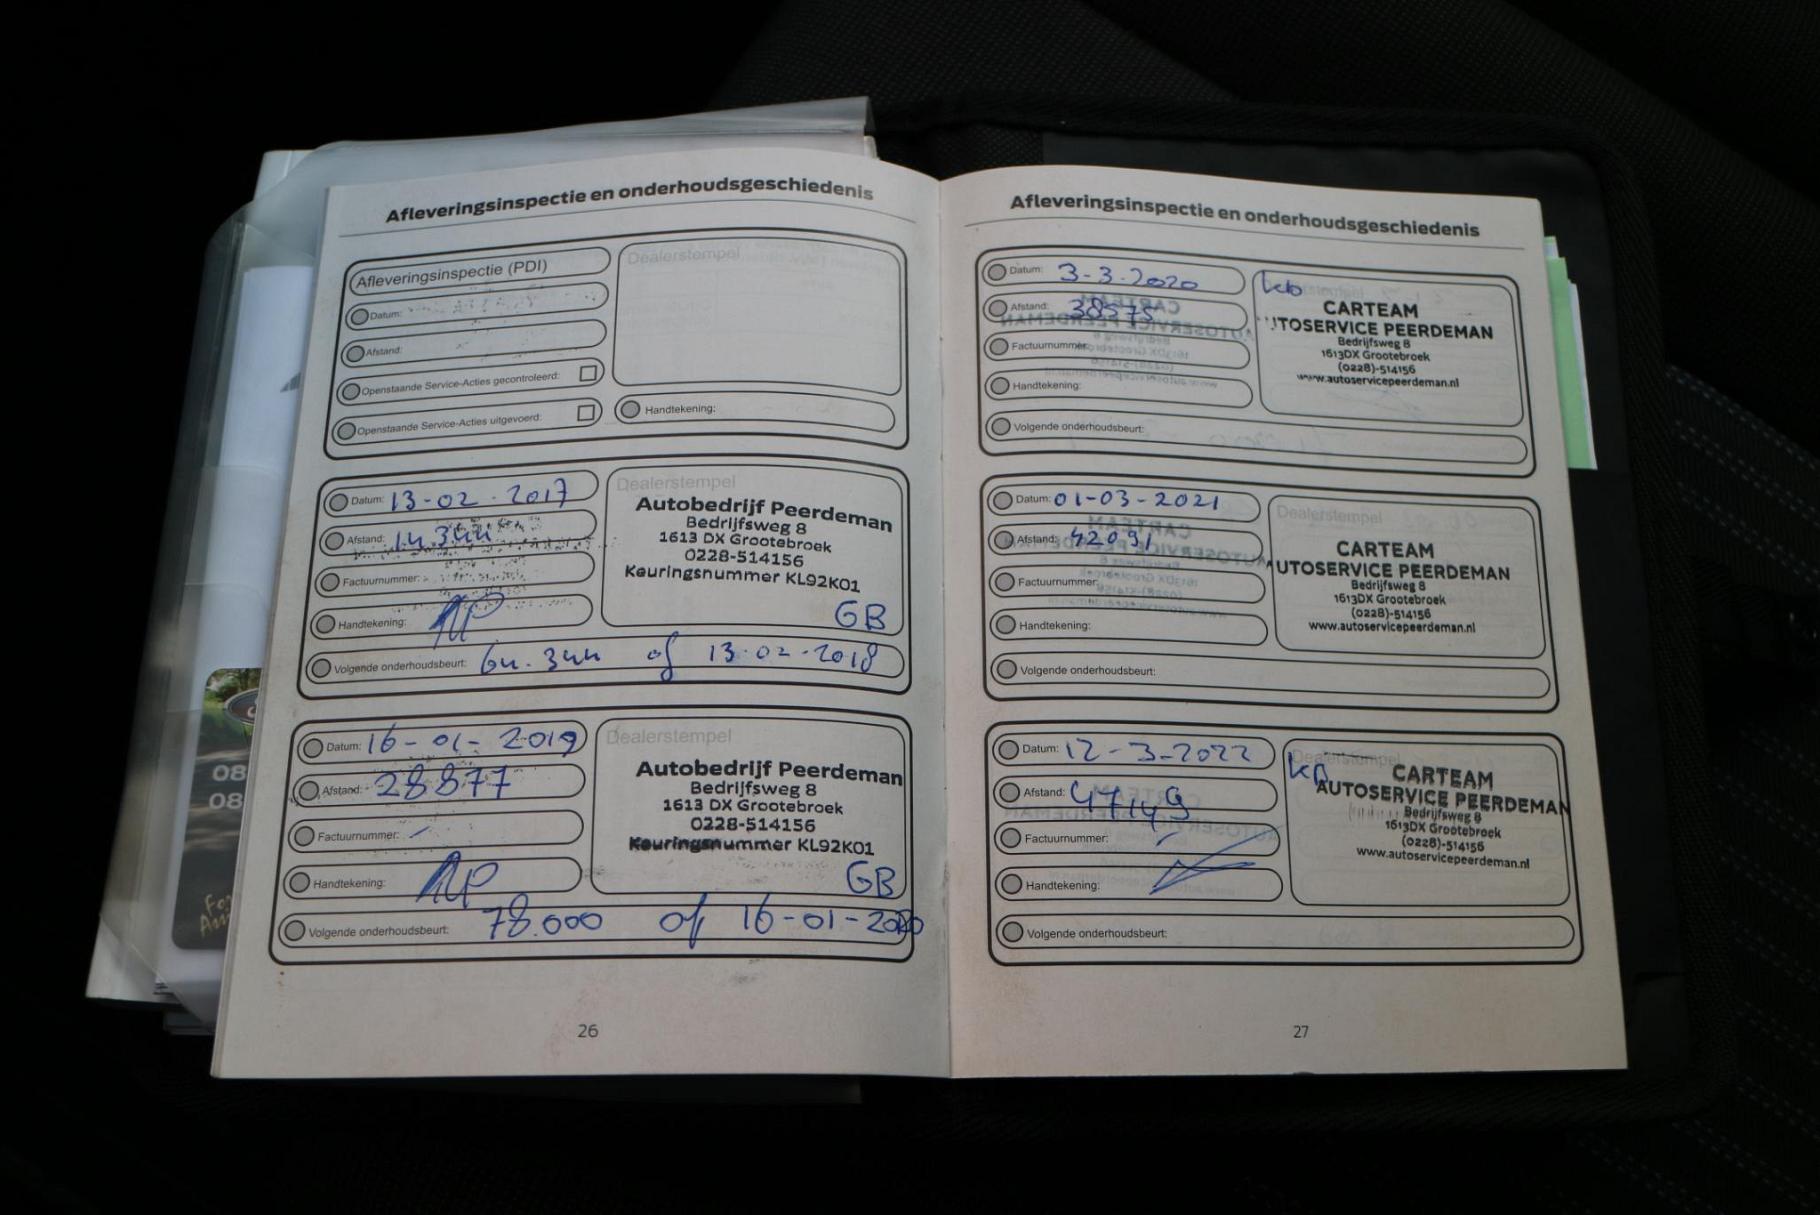 Afleveringsinspectie en onderhoudsgeschiedenis
Afleveringsinspectie (PDI)
Dealerstempel
Datum:
Afstand:
Openstaande Service-Acties gecontroleerd:
Openstaande Service-Acties uitgevoerd:
Handtekening:
Datum: 13-02-2017
Dealerstempel
Autobedrijf Peerdeman
Bedrijfsweg 8
1613 DX Grootebroek
0228-514156
Keuringsnummer KL92K01
GB
Afstand:
Factuurnummer:
Handtekening:
Volgende onderhoudsbeurt: of 13-02-2018
Datum: 16-01-2019
Dealerstempel
Autobedrijf Peerdeman
Bedrijfsweg 8
1613 DX Grootebroek
0228-514156
Keuringsnummer KL92K01
GB
Afstand: 28877
Factuurnummer: -
Handtekening:
Volgende onderhoudsbeurt: 78.000 of 16-01-2020
26
Afleveringsinspectie en onderhoudsgeschiedenis
Datum: 3-3-2020
CARTEAM
UTOSERVICE PEERDEMAN
Bedrijfsweg 8
1613DX Grootebroek
(0228)-514156
www.autoservicepeerdeman.nl
Afstand: 38575
Factuurnummer:
Handtekening:
Volgende onderhoudsbeurt:
Datum: 01-03-2021
Dealerstempel
CARTEAM
AUTOSERVICE PEERDEMAN
Bedrijfsweg 8
1613DX Grootebroek
(0228)-514156
www.autoservicepeerdeman.nl
Afstand: 42091
Factuurnummer:
Handtekening:
Volgende onderhoudsbeurt:
Datum: 12-3-2022
Dealerstempel
CARTEAM
AUTOSERVICE PEERDEMAN
Bedrijfsweg 8
1613DX Grootebroek
(0228)-514156
www.autoservicepeerdeman.nl
Afstand: 47149
Factuurnummer:
Handtekening:
Volgende onderhoudsbeurt:
27
08
08